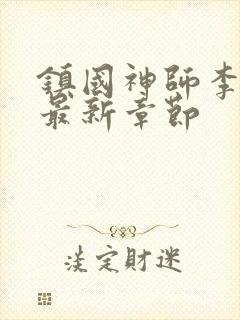 鎮國神師李
最新章節
淡定財迷